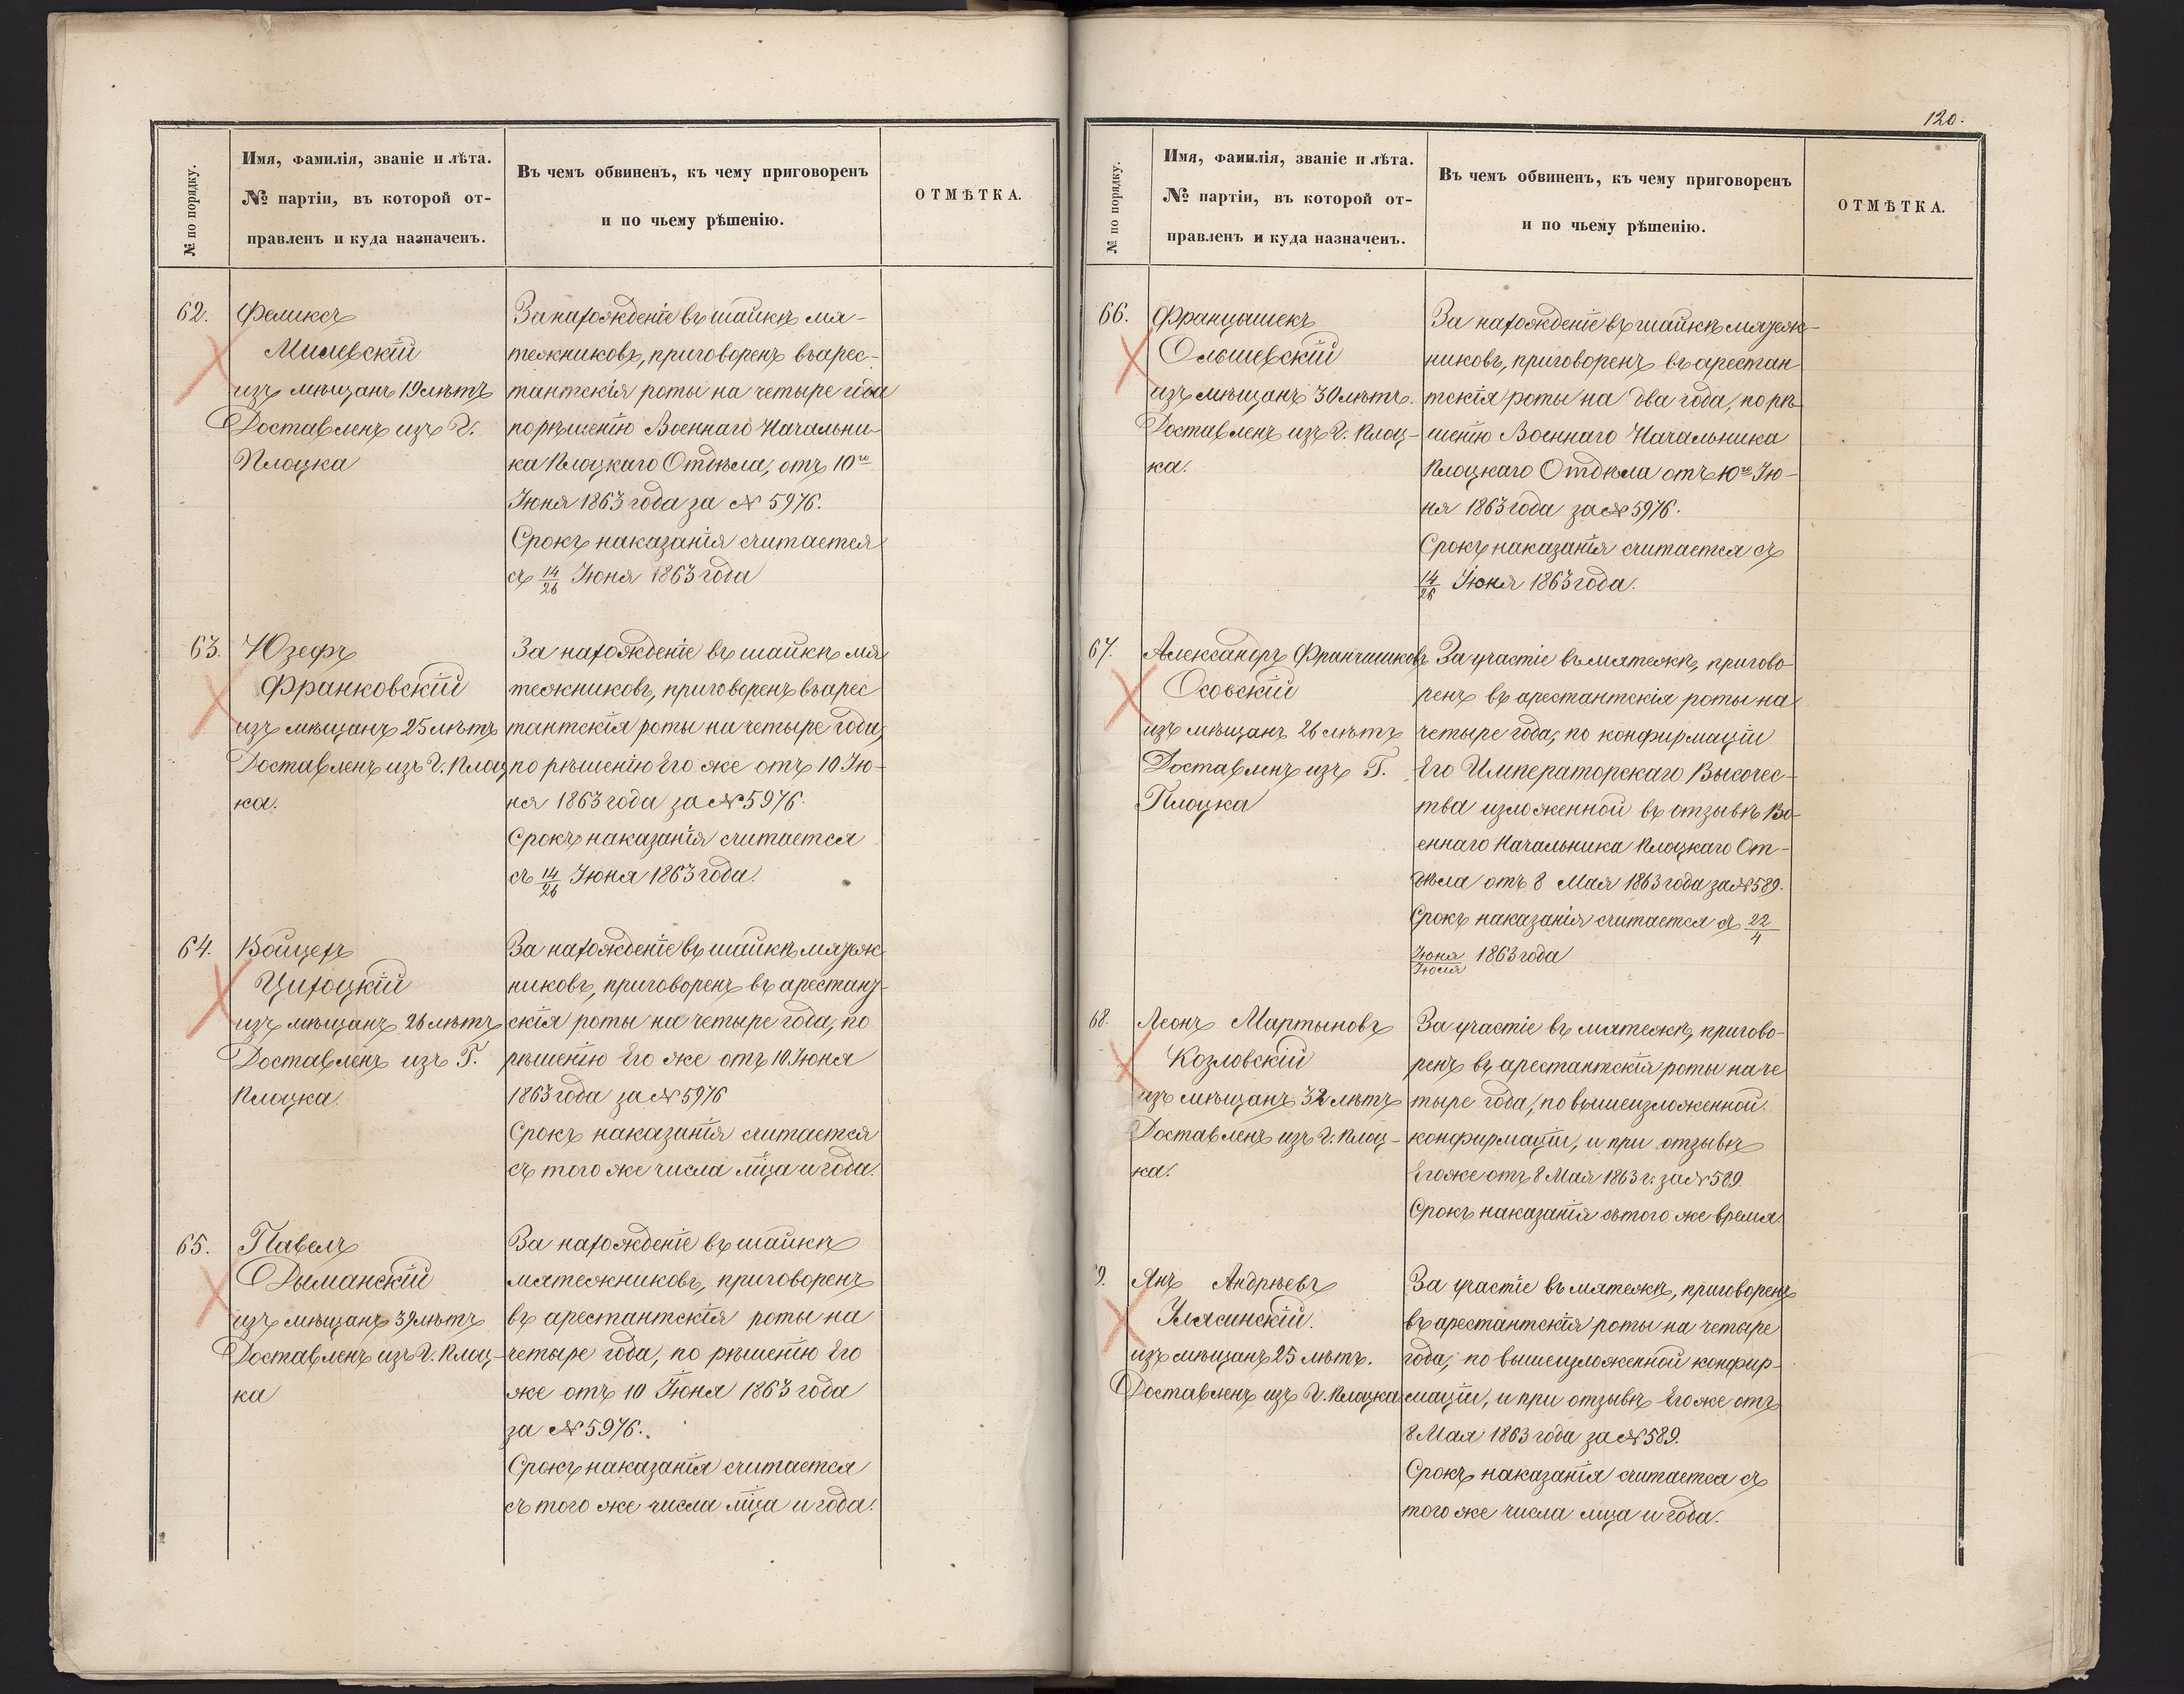 № по порядку.
Имя, фамилія, званіе и лѣта.
№ партіи, въ которой от-
правленъ и куда назначенъ.
Въ чемъ обвиненъ, къ чему приговоренъ
и по чьему рѣшенію.
ОТМѢТКА.
62.
Феликсъ
Милевскій
изъ мѣщанъ 19 лѣтъ
Доставленъ изъ Г.
Плоцка
За нахожденіе въ шайкѣ мя-
тежниковъ, приговоренъ въ арес-
тантскія роты на четыре года
по рѣшенію Военнаго Начальни-
ка Плоцкаго Отдѣла, отъ 10го
Іюня 1863 года за № 5976.
Срокъ наказанія считается
съ 14/26 Іюня 1863 года
63.
Юзефъ
Франковскій
изъ мѣщанъ 25 лѣтъ
Доставленъ изъ Г. Плоц
ка.
За нахожденіе въ шайкѣ мя
тежниковъ, приговоренъ въ арес
тантскія роты на четыре года,
по рѣшенію Его же отъ 10 Ію-
ня 1863 года за № 5976.
Срокъ наказанія считается
съ 14/26 Іюня 1863 года.
64.
Войцехъ
Цихоцкій
изъ мѣщанъ 26 лѣтъ
Доставленъ изъ Г.
Плоцка.
За нахожденіе въ шайкѣ мятеж
никовъ, приговоренъ въ арестант-
скія роты на четыре года, по
рѣшенію Его же отъ 10 Іюня
1863 года за № 5976
Срокъ наказанія считается
съ того же числа мца и года.
65.
Павелъ
Дыманскій
изъ мѣщанъ 39 лѣтъ
Доставленъ изъ Г. Плоц-
ка
За нахожденіе въ шайкѣ
мятежниковъ, приговоренъ
въ арестантскія роты на
четыре года, по рѣшенію Его
же отъ 10 Іюня 1863 года
за № 5976.
Срокъ наказанія считается
съ того же числа мца и года.
120.
№ по порядку.
Имя, фамилія, званіе и лѣта.
№ партіи, въ которой от-
правленъ и куда назначенъ.
Въ чемъ обвиненъ, къ чему приговоренъ
и по чьему рѣшенію.
ОТМѢТКА.
66.
Францышекъ
Ольшевскій
изъ мѣщанъ 30 лѣтъ.
Доставленъ изъ Г. Плоц-
ка.
За нахожденіе въ шайкѣ мятеж-
никовъ, приговоренъ въ арестан
тскія роты на два года, по рѣ-
шенію Военнаго Начальника
Плоцкаго Отдѣла отъ 10го Ію-
ня 1863 года за № 5976.
Срокъ наказанія считается съ
14/26 Іюня 1863 года.
67.
Александръ Франчишковъ
Осовскій
изъ мѣщанъ 26 лѣтъ
Доставленъ изъ Г.
Плоцка
За участіе въ мятежѣ, пригово-
ренъ въ арестантскія роты на
четыре года, по конфирмаціи
Его Императорскаго Высочес-
тва изложенной въ отзывѣ Во-
еннаго Начальника Плоцкаго От-
дѣла отъ 8 Мая 1863 года за № 589.
Срокъ наказанія считается съ 22/4
Іюня/Іюля 1863 года
68.
Леонъ Мартыновъ
Козловскій
изъ мѣщанъ 32 лѣтъ
Доставленъ изъ Г. Плоц-
ка.
За участіе въ мятежѣ, пригово-
ренъ въ арестантскія роты на че
тыре года, по вышеизложенной
конфирмаціи, и при отзывѣ
Его же отъ 8 Мая 1863 г. за № 589.
Срокъ наказанія съ того же время.
9.
Янъ Андрѣевъ
Улясинскій.
изъ мѣщанъ 25 лѣтъ.
Доставленъ изъ Г. Плоцка.
За участіе въ мятежѣ, приговоренъ
въ арестантскія роты на четыре
года, по вышеизложенной конфир-
маціи, и при отзывѣ Его же отъ
8 Мая 1863 года за № 589.
Срокъ наказанія считается съ
того же числа мца и года.